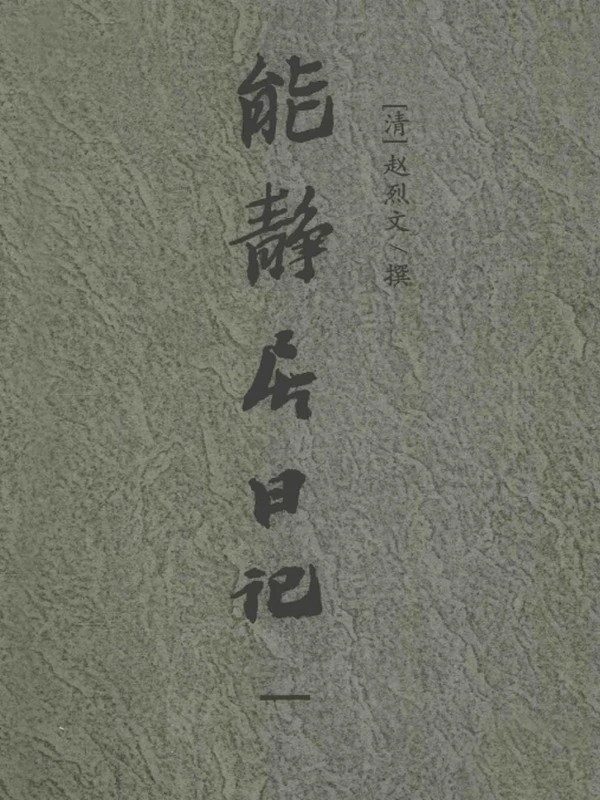 [清]赵烈文/撰
能静居日记
一